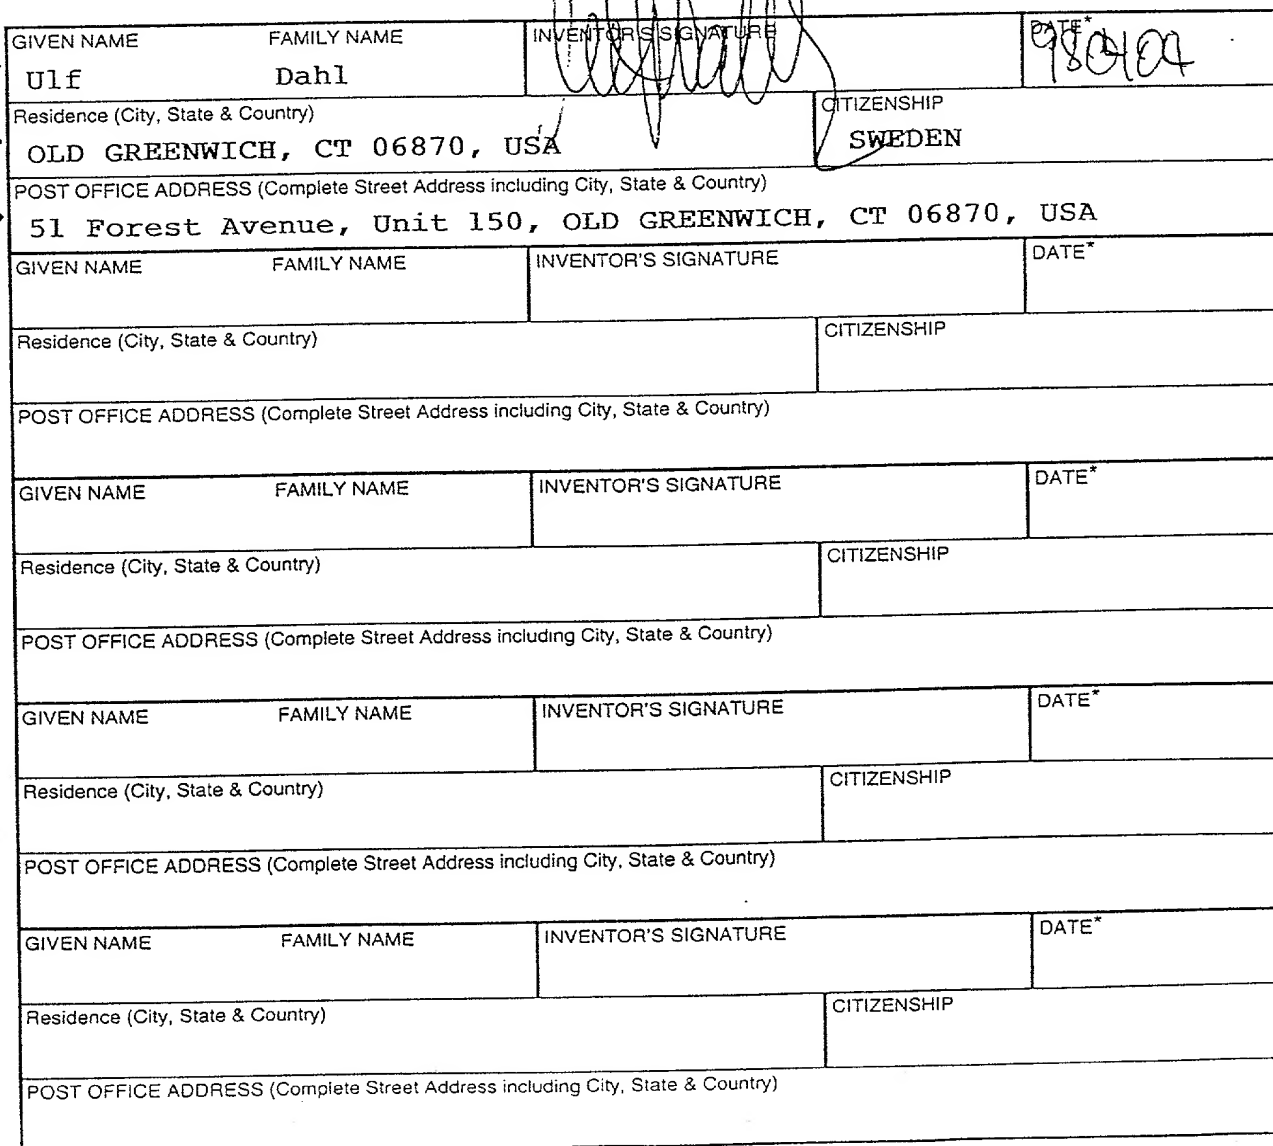 GIVEN NAME FAMILY NAME INVENTOR'S SIGNATURE DATE*
Ulf Dahl 980404
Residence (City, State & Country) CITIZENSHIP
OLD GREENWICH, CT 06870, USA SWEDEN
POST OFFICE ADDRESS (Complete Street Address including City, State & Country)
51 Forest Avenue, Unit 150, OLD GREENWICH, CT 06870, USA
GIVEN NAME FAMILY NAME INVENTOR'S SIGNATURE DATE*
Residence (City, State & Country) CITIZENSHIP
POST OFFICE ADDRESS (Complete Street Address including City, State & Country)
GIVEN NAME FAMILY NAME INVENTOR'S SIGNATURE DATE*
Residence (City, State & Country) CITIZENSHIP
POST OFFICE ADDRESS (Complete Street Address including City, State & Country)
GIVEN NAME FAMILY NAME INVENTOR'S SIGNATURE DATE*
Residence (City, State & Country) CITIZENSHIP
POST OFFICE ADDRESS (Complete Street Address including City, State & Country)
GIVEN NAME FAMILY NAME INVENTOR'S SIGNATURE DATE*
Residence (City, State & Country) CITIZENSHIP
POST OFFICE ADDRESS (Complete Street Address including City, State & Country)